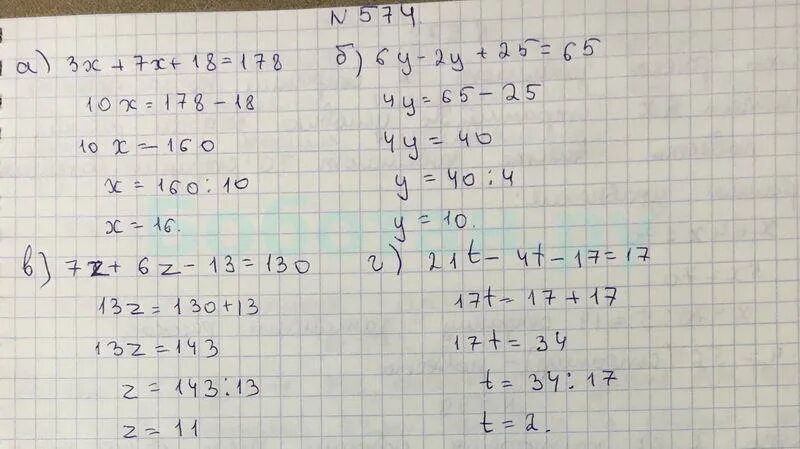 N 574.
а) 3x + 7x + 18 = 178
10x = 178 - 18
10x = 160
x = 160 : 10
x = 16.
б) 6y - 2y + 25 = 65
4y = 65 - 25
4y = 40
y = 40 : 4
y = 10.
в) 7z + 6z - 13 = 130
13z = 130 + 13
13z = 143
z = 143 : 13
z = 11
г) 21t - 4t - 17 = 17
17t = 17 + 17
17t = 34
t = 34 : 17
t = 2.